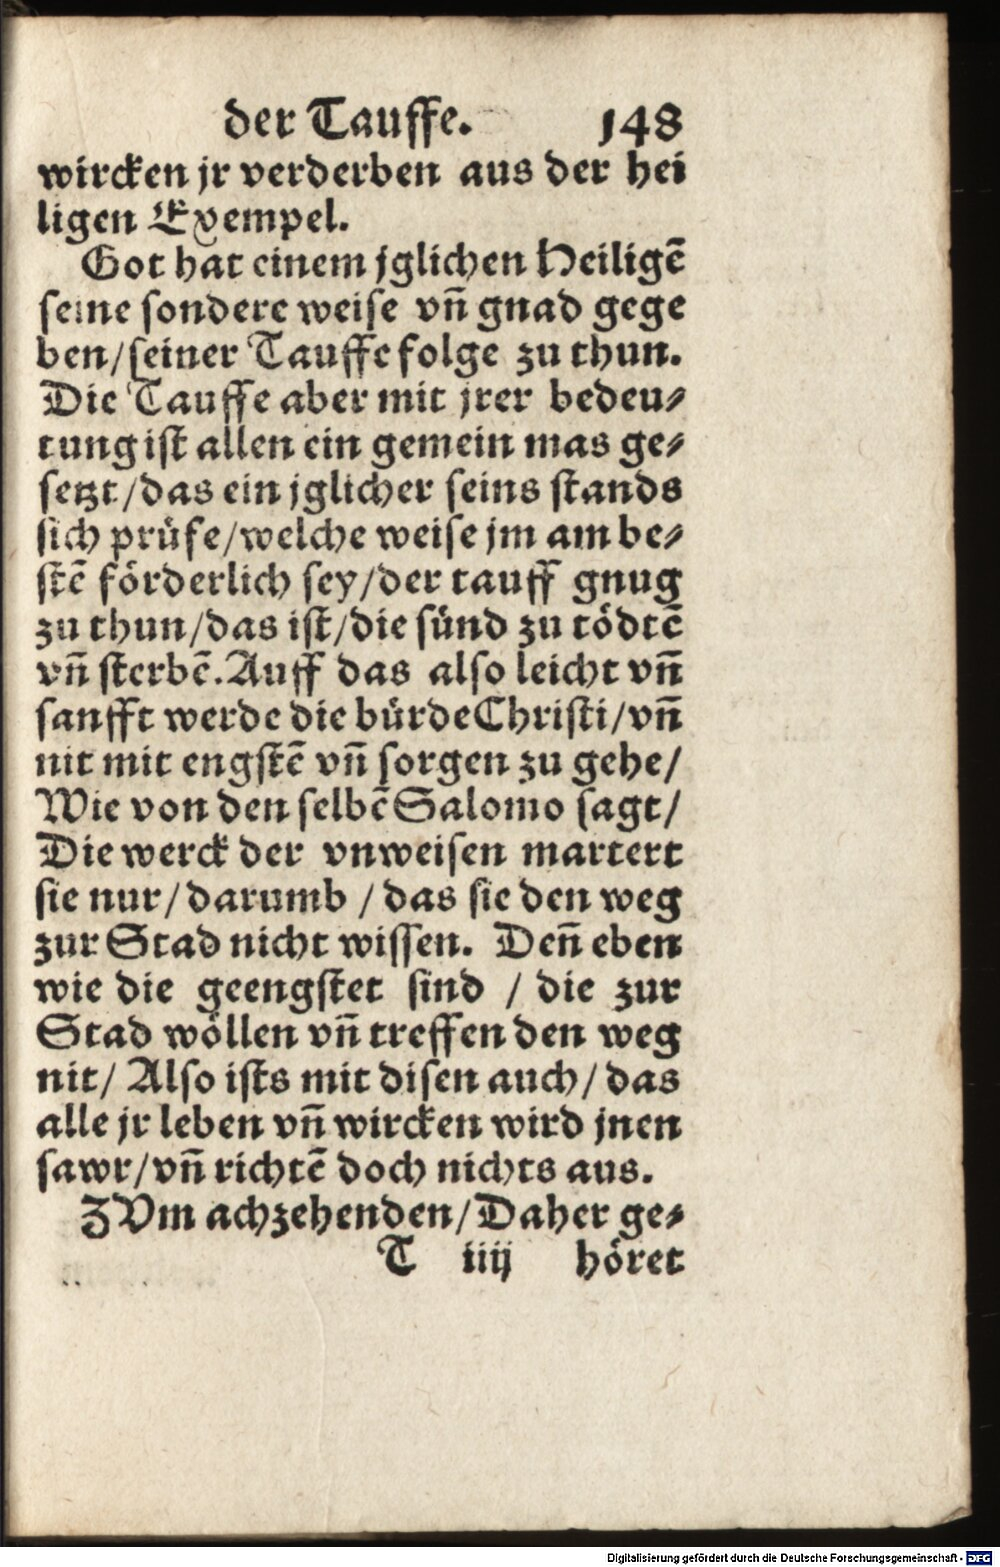 der Tauffe. 148
wircken jr verderben aus der hei
ligen Exempel.
Got hat einem jglichen Heiligē
seine sondere weise vn̄ gnad gege
ben/seiner Tauffe folge zu thun.
Die Tauffe aber mit jrer bedeu⸗
tung ist allen ein gemein mas ge⸗
setzt/das ein jglicher seins stands
sich prüfe/welche weise jm am be⸗
stē förderlich sey/der tauff gnug
zu thun/das ist/die sünd zu tödtē
vn̄ sterbē. Auff das also leicht vn̄
sanfft werde die bürde Christi/vn̄
nit mit engstē vn̄ sorgen zu gehe/
Wie von den selbē Salomo sagt/
Die werck der vnweisen martert
sie nur/darumb/das sie den weg
zur Stad nicht wissen. Den̄ eben
wie die geengstet sind/die zur
Stad wöllen vn̄ treffen den weg
nit/Also ists mit disen auch/das
alle jr leben vn̄ wircken wird jnen
sawr/vn̄ richtē doch nichts aus.
ZVm achzehenden/Daher ge⸗
T iiij höret
Digitalisierung gefördert durch die Deutsche Forschungsgemeinschaft - DFG